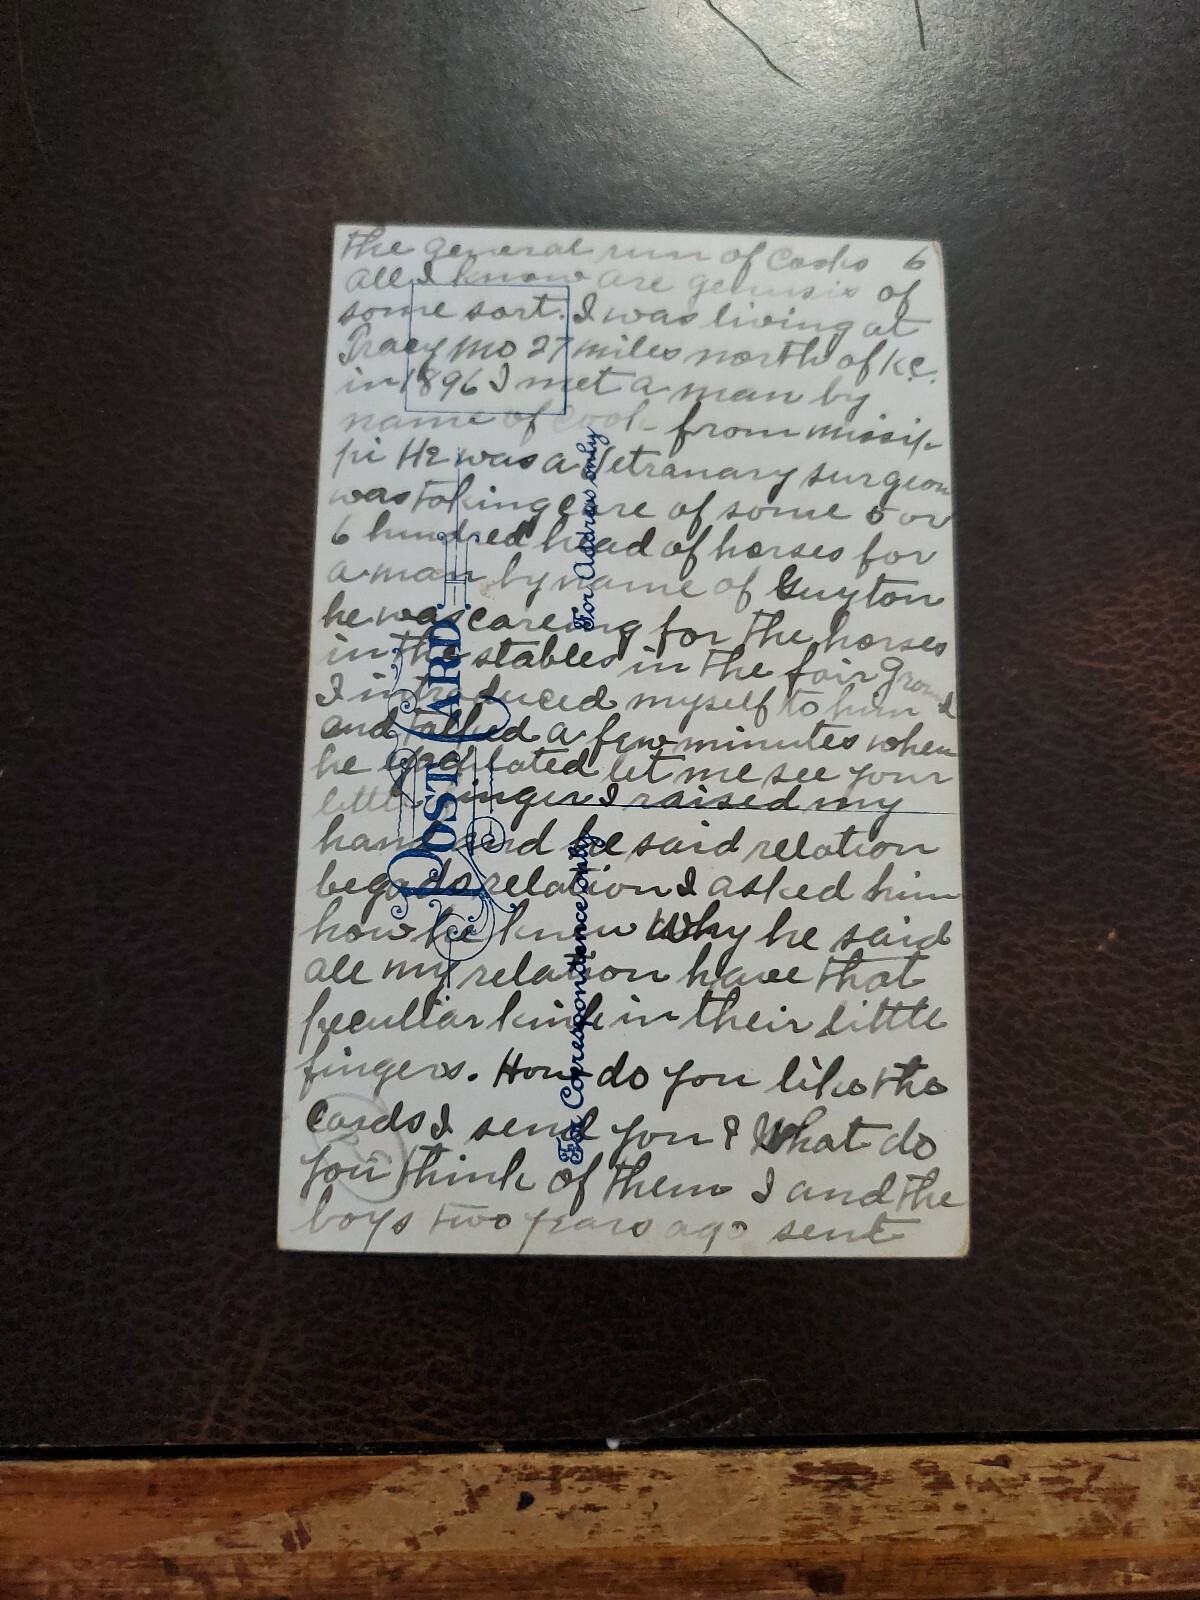 the general run of Cooks 6
all I know are genusis of
some sort. I was living at
Tracy Mo 27 miles north of K.C.
in 1896 I met a man by
name of Cook from missip
pi He was a Vetranary surgeon
was taking care of some 5 or
6 hundred head of horses for
a man by name of Guyton
he was careing for the horses
in the stables in the fair ground
I introduced myself to him
and talked a few minutes when
he let me see your
little finger I raised my
hand and he said relation
begads relation I asked him
how he knew Why he said
all my relation have that
peculiar kink in their little
fingers. How do you like the
cards I send you? What do
you think of them I and the
boys two years ago sent
POST CARD
For Address only
For Correspondence only